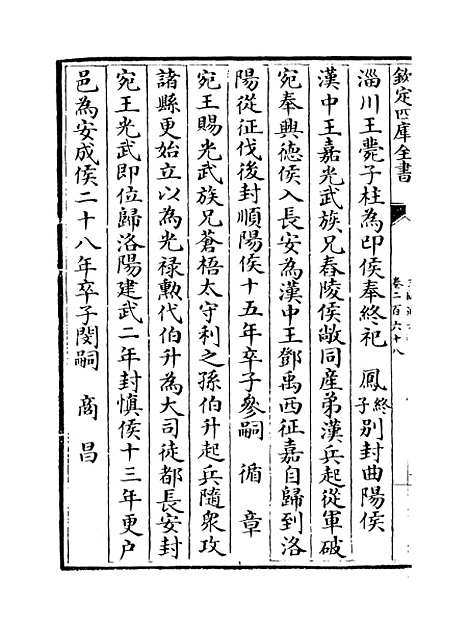 欽定四庫全書
卷二百六十八
淄川王薨子柱為邔侯奉終祀　鳳終子別封曲陽侯
漢中王嘉光武族兄舂陵侯敞同産弟漢兵起從軍破
宛奉興德侯入長安為漢中王鄧禹西征嘉自歸到洛
陽從征伐後封順陽侯十五年卒子參嗣　循　章
宛王賜光武族兄蒼梧太守利之孫伯升起兵隨衆攻
諸縣更始立以為光禄勲代伯升為大司徒都長安封
宛王光武即位歸洛陽建武二年封慎侯十三年更户
邑為安成侯二十八年卒子閔嗣　商　昌